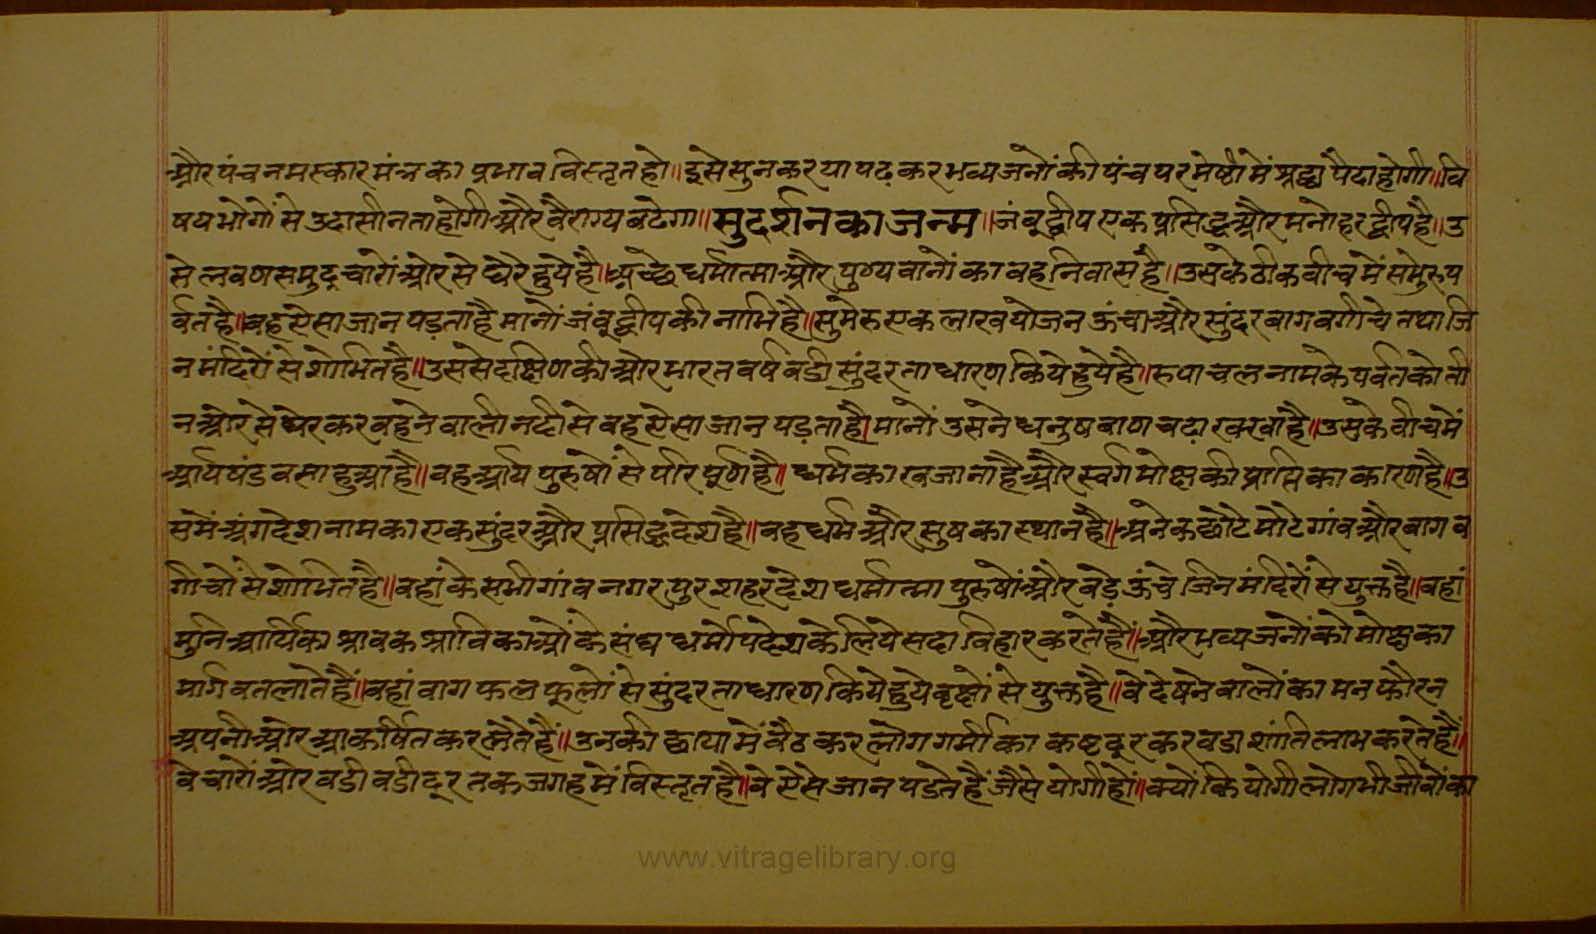 और पंच नमस्कार मंत्र का प्रभाव विस्तृत हो॥ इसे सुनकर या पढ़कर भव्य जनों की पंच परमेष्ठी में श्रद्धा पैदा होगी॥ वि
षय भोगों से उदासीनता होगी और वैराग्य बढेगा॥ सुदर्शन का जन्म॥ जंबूद्वीप एक प्रसिद्ध और मनोहर द्वीप है॥ उ
से लवण समुद्र चारों ओर से घेरे हुये है॥ अच्छे धर्मात्मा और पुण्यवानों का वह निवास है॥ उसके ठीक बीच में समेरु प
र्वत है॥ वह ऐसा जान पड़ता है मानों जंबूद्वीप की नाभि है॥ सुमेरु एक लाख योजन ऊंचा और सुंदर बाग बगीचे तथा जि
न मंदिरों से शोभित है॥ उससे दक्षिण की ओर भारतवर्ष बडी सुंदरता धारण किये हुये है॥ रुपाचल नाम के पर्वत को ती
न ओर से घेर कर बहने वाली नदी से वह ऐसा जान पड़ता है॥ मानों उसने धनुष बाण चढा रक्खा है॥ उसके बीच में
आर्यषंड बसा हुआ है॥ वह आर्य पुरुषों से परिपूर्ण है॥ धर्म का खजाना है और स्वर्ग मोक्ष की प्राप्ति का कारण है॥ उ
समें अंगदेश नाम का एक सुंदर और प्रसिद्ध देश है॥ वह धर्म और सुष का स्थान है॥ अनेक छोटे मोटे गांव और बाग ब
गीचों से शोभित है॥ वहां के सभी गांव नगर पुर शहर देश धर्मात्मा पुरुषों और बड़े ऊंचे जिन मंदिरों से युक्त है॥ वहां
मुनि आर्यिका श्रावक श्राविकाओं के संघ धर्मोपदेश के लिये सदा विहार करते हैं॥ और भव्य जनों को मोक्ष का
मार्ग बतलाते हैं॥ वहां बाग फल फूलों से सुंदरता धारण किये हुये वृक्षों से युक्त है॥ वे देषने वालों का मन फौरन
अपनी ओर आकर्षित कर लेते हैं॥ उनकी छाया में बैठ कर लोग गर्मी का कष्ट दूर कर बडा शांति लाभ करते हैं॥
वे चारों ओर बडी बडी दूर तक जगह में विस्तृत है॥ वे ऐसे जान पडते हैं जैसे योगी हों॥ क्यों कि योगी लोग भी जीवों का
www.vitragelibrary.org